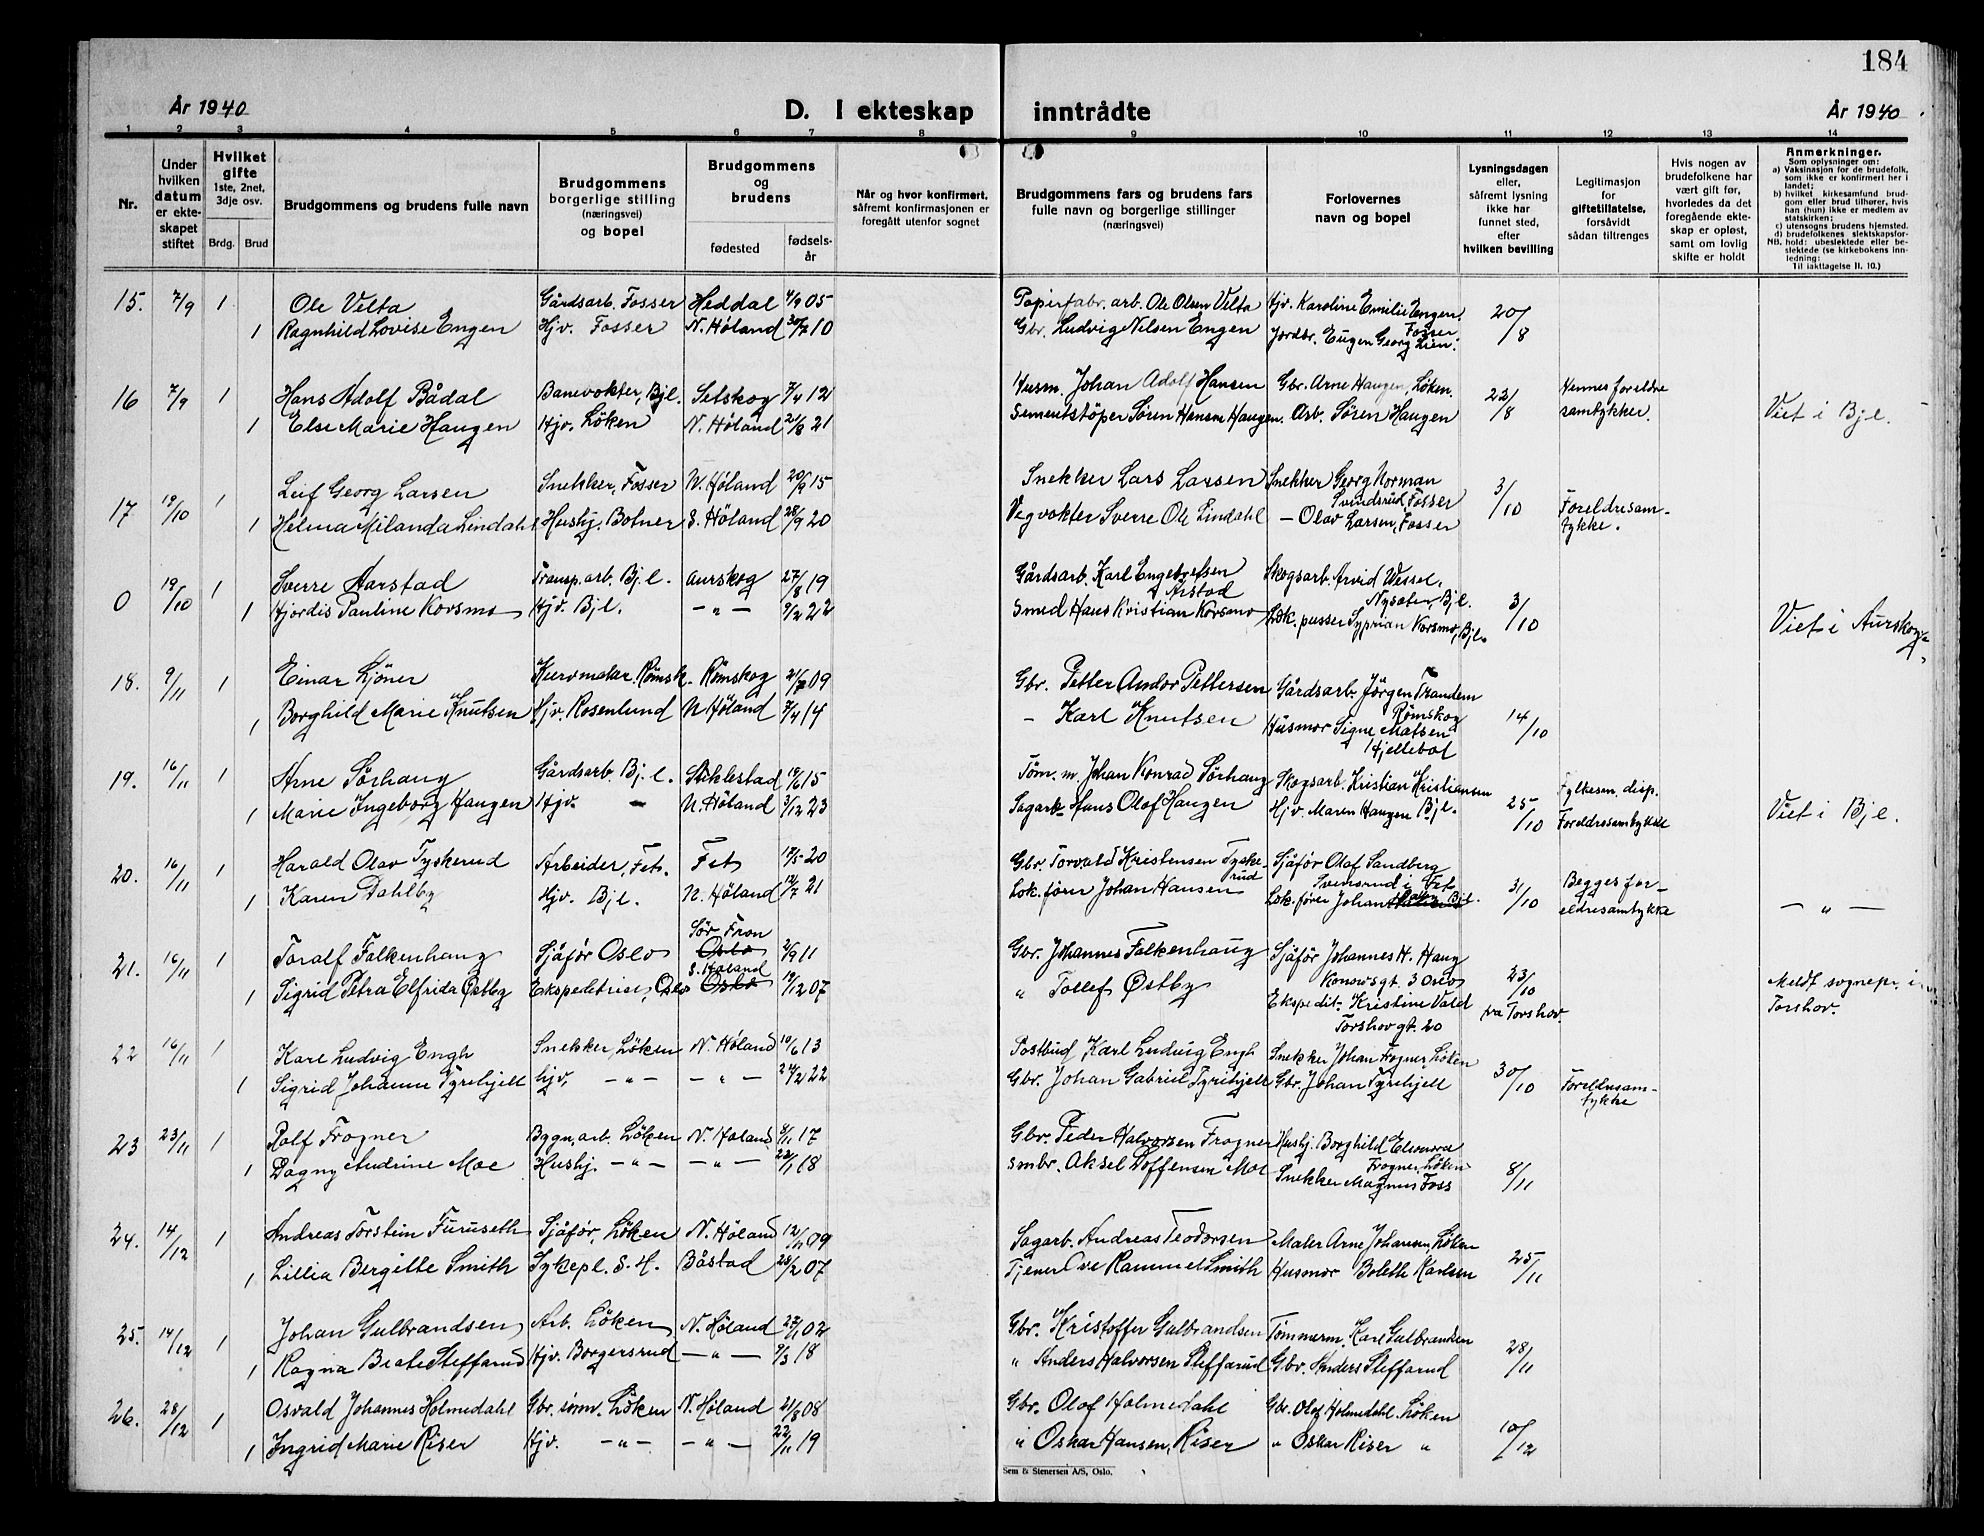 184
År 1940
D. I ekteskap inntrådte
År 1940
1 2 3 4 5 6 7 8 9 10 11 12 13 14
Nr.
Under hvilken datum er ekteskapet stiftet
Hvilket gifte 1ste, 2net, 3dje osv.
Brdg. Brud
Brudgommens og brudens fulle navn
Brudgommens borgerlige stilling (næringsvei) og bopel
Brudgommens og brudens
fødested
fødselsår
Når og hvor konfirmert, såfremt konfirmasjonen er foregått utenfor sognet
Brudgommens fars og brudens fars fulle navn og borgerlige stillinger (næringsvei)
Forlovernes navn og bopel
Lysningsdagen eller, såfremt lysning ikke har funnet sted, efter hvilken bevilling
Legitimasjon for giftetillatelse, forsåvidt sådan tiltrenges
Hvis nogen av brudefolkene har vært gift før, hvorledes da det foregående ekteskap er opløst, samt om lovlig skifte er holdt
Anmerkninger.
Som oplysninger om:
a) Vaksinasjon for de brudefolk, som ikke er konfirmert her i landet;
b) hvilket kirkesamfund brudgom eller brud tilhører, hvis han (hun) ikke er medlem av statskirken;
c) utensogns brudens hjemsted.
d) brudefolkenes slektskapsforhold: ubeslektede eller beslektede (se kirkebokens innledning:
NB.
Til iakttagelse II. 10.)
15. 7/9 1 Ole Velta Gårdsarb. Fosser Heddal 4/9 05 Papirfabr. arb. Ole Olsen Velta Hjv. Karoline Emilie Engen, Fosser 20/8
1 Ragnhild Lovise Engen Hjv. Fosser N. Høland 30/7 10 Gbr. Ludvig Nilsen Engen Jordbr. Eugen Georg Lien.
16 7/9 1 Hans Adolf Bådal Banevokter, Bjl. Setskog 7/4 12 Husm. Johan Adolf Hansen Gbr. Arne Haugen, Löken. 22/8 Hennes foreldre samtykker. Viet i Bjl.
1 Else Marie Haugen Hjv. Löken N. Høland 21/8 21 Sementstöper Sören Hansen Haugen. Arb. Sören Haugen
17 19/10 1 Leif Georg Larsen Snekker, Fosser N. Høland 20/9 15 Snekker Lars Larsen Snekker Georg Norman Svendsrud, Fosser 3/10 Foreldresamtykke.
1 Helma Milanda Lindahl Hushj. Botner S. Høland 28/9 20 Vegvokter Sverre Ole Lindahl — Olav Larsen, Fosser
0 19/10 1 Sverre Aarstad Transp. arb. Bj.l. Aurskog 27/8 19 Gårdsarb. Karl Engebretsen Arstad Skogsarb. Arvid Wessel, Bjl. 3/10 Viet i Aurskog
1 Hjordis Pauline Korsmo Hjv. Bjl. — „ — 9/2 22 Smed Hans Kristian Korsmo Lok. pusser Syprian Korsmo, Bjl.
18. 9/11 1 Einar Ljöner Rømsk. Rømskog 21/7 09 Gbr. Petter Andor Pettersen Gårdsarb. Jörgen Trandem Rømskog 14/10
1 Borghild Marie Knutsen Hjv. Rosenlund N. Høland 7/4 14 — Karl Knutsen Husmor Signe Matsen Hjellebøl
19. 16/11 1 Arne Sörhaug Gårdsarb. Bj.l. Stiklestad 19/6 15 Töm. m. Johan Konrad Sörhaug Skogsarb. Kristian Kristiansen 25/10 Fylkesm. disp. Foreldresamtykke Viet i Bjl.
1 Marie Ingeborg Haugen Hjv. — N. Høland 3/12 23 Sagarb. Hans Olof Haugen Hjv. Maren Haugen Bjl.
20. 16/11 1 Harald Olav Tyskerud Arbeider, Fet. Fet 17/5 20 Gbr. Torvald Kristensen Tyskerud Sjåför Olaf Sandberg Svensrud i Fet 31/10 Begges foreldresamtykke — „ —
1 Karen Dahlby Hjv. Bjl. N. Høland 12/7 21 Lok. förer Johan Hansen Lok. förer Johan Bjl.
21. 16/11 1 Toralf Falkenhaug Sjåför Oslo Sör Fron Oslo 2/9 11 Gbr. Johannes Falkenhaug Sjåför Johannes H. Haug Konowsgt. 3 Oslo 23/10 fra Torshov. Meldt sognepr. i Torshov.
1 Sigrid Petra Elfrida Østby Ekspeditrise, Oslo S. Høland Oslo 19/12 07 „ Tollef Østby Ekspedit. Kristine Vald Torshovgt. 20
22 16/11 1 Kare Ludvig Engh Snekker, Löken N. Høland 10/6 13 Postbud Karl Ludvig Engh Snekker Johan Frogner, Löken 30/10 Foreldresamtykke
1 Sigrid Johanne Tyrihjell hjv. — „ — — „ — 24/2 22 Gbr. Johan Gabriel Tyrihjell Gbr. Johan Tyrihjell
23 23/11 1 Rolf Frogner Byggn. arb. Löken N. Høland 8/11 17 Gbr. Peder Halvorsen Frogner Hushj. Borghild Eleonora Frogner, Löken 8/11
1 Dagny Andrine Moe Hushj. — „ — — „ — 22/1 18 Smbr. Aksel Doffensen Moe Snekker Magnus Foss
24. 14/12 1 Andreas Torstein Furuseth Sjåför, Löken N. Høland 12/11 09 Sagarb. Andreas Teodorsen Maler Arne Johansen, Löken 25/11
1 Lillia Bergitte Smith Sykepl. S. H. Båstad 28/2 07 Tjener Ove Rammel Smith Husmor Boleth Karlsen
25. 14/12 1 Johan Gulbrandsen Arb. Löken N. Høland 27/1 02 Gbr. Kristoffer Gulbrandsen Tömmerm. Kare Gulbrandsen 28/11
1 Ragna Beate Steffarud Hjv. Borgersrud — „ — 9/3 18 „ Anders Halvorsen Steffarud Gbr. Anders Steffarud
26. 28/12 1 Osvald Johannes Holmedahl Gbr. sönn. Löken N. Høland 21/8 08 Gbr. Olof Holmedahl Gbr. Olof Holmedahl. Löken 10/12
1 Ingrid Marie Riser Hjv. — „ — — „ — 22/11 19 „ Oskar Hansen, Riser „ Oskar Riser „
Sem & Stenersen A/S, Oslo.